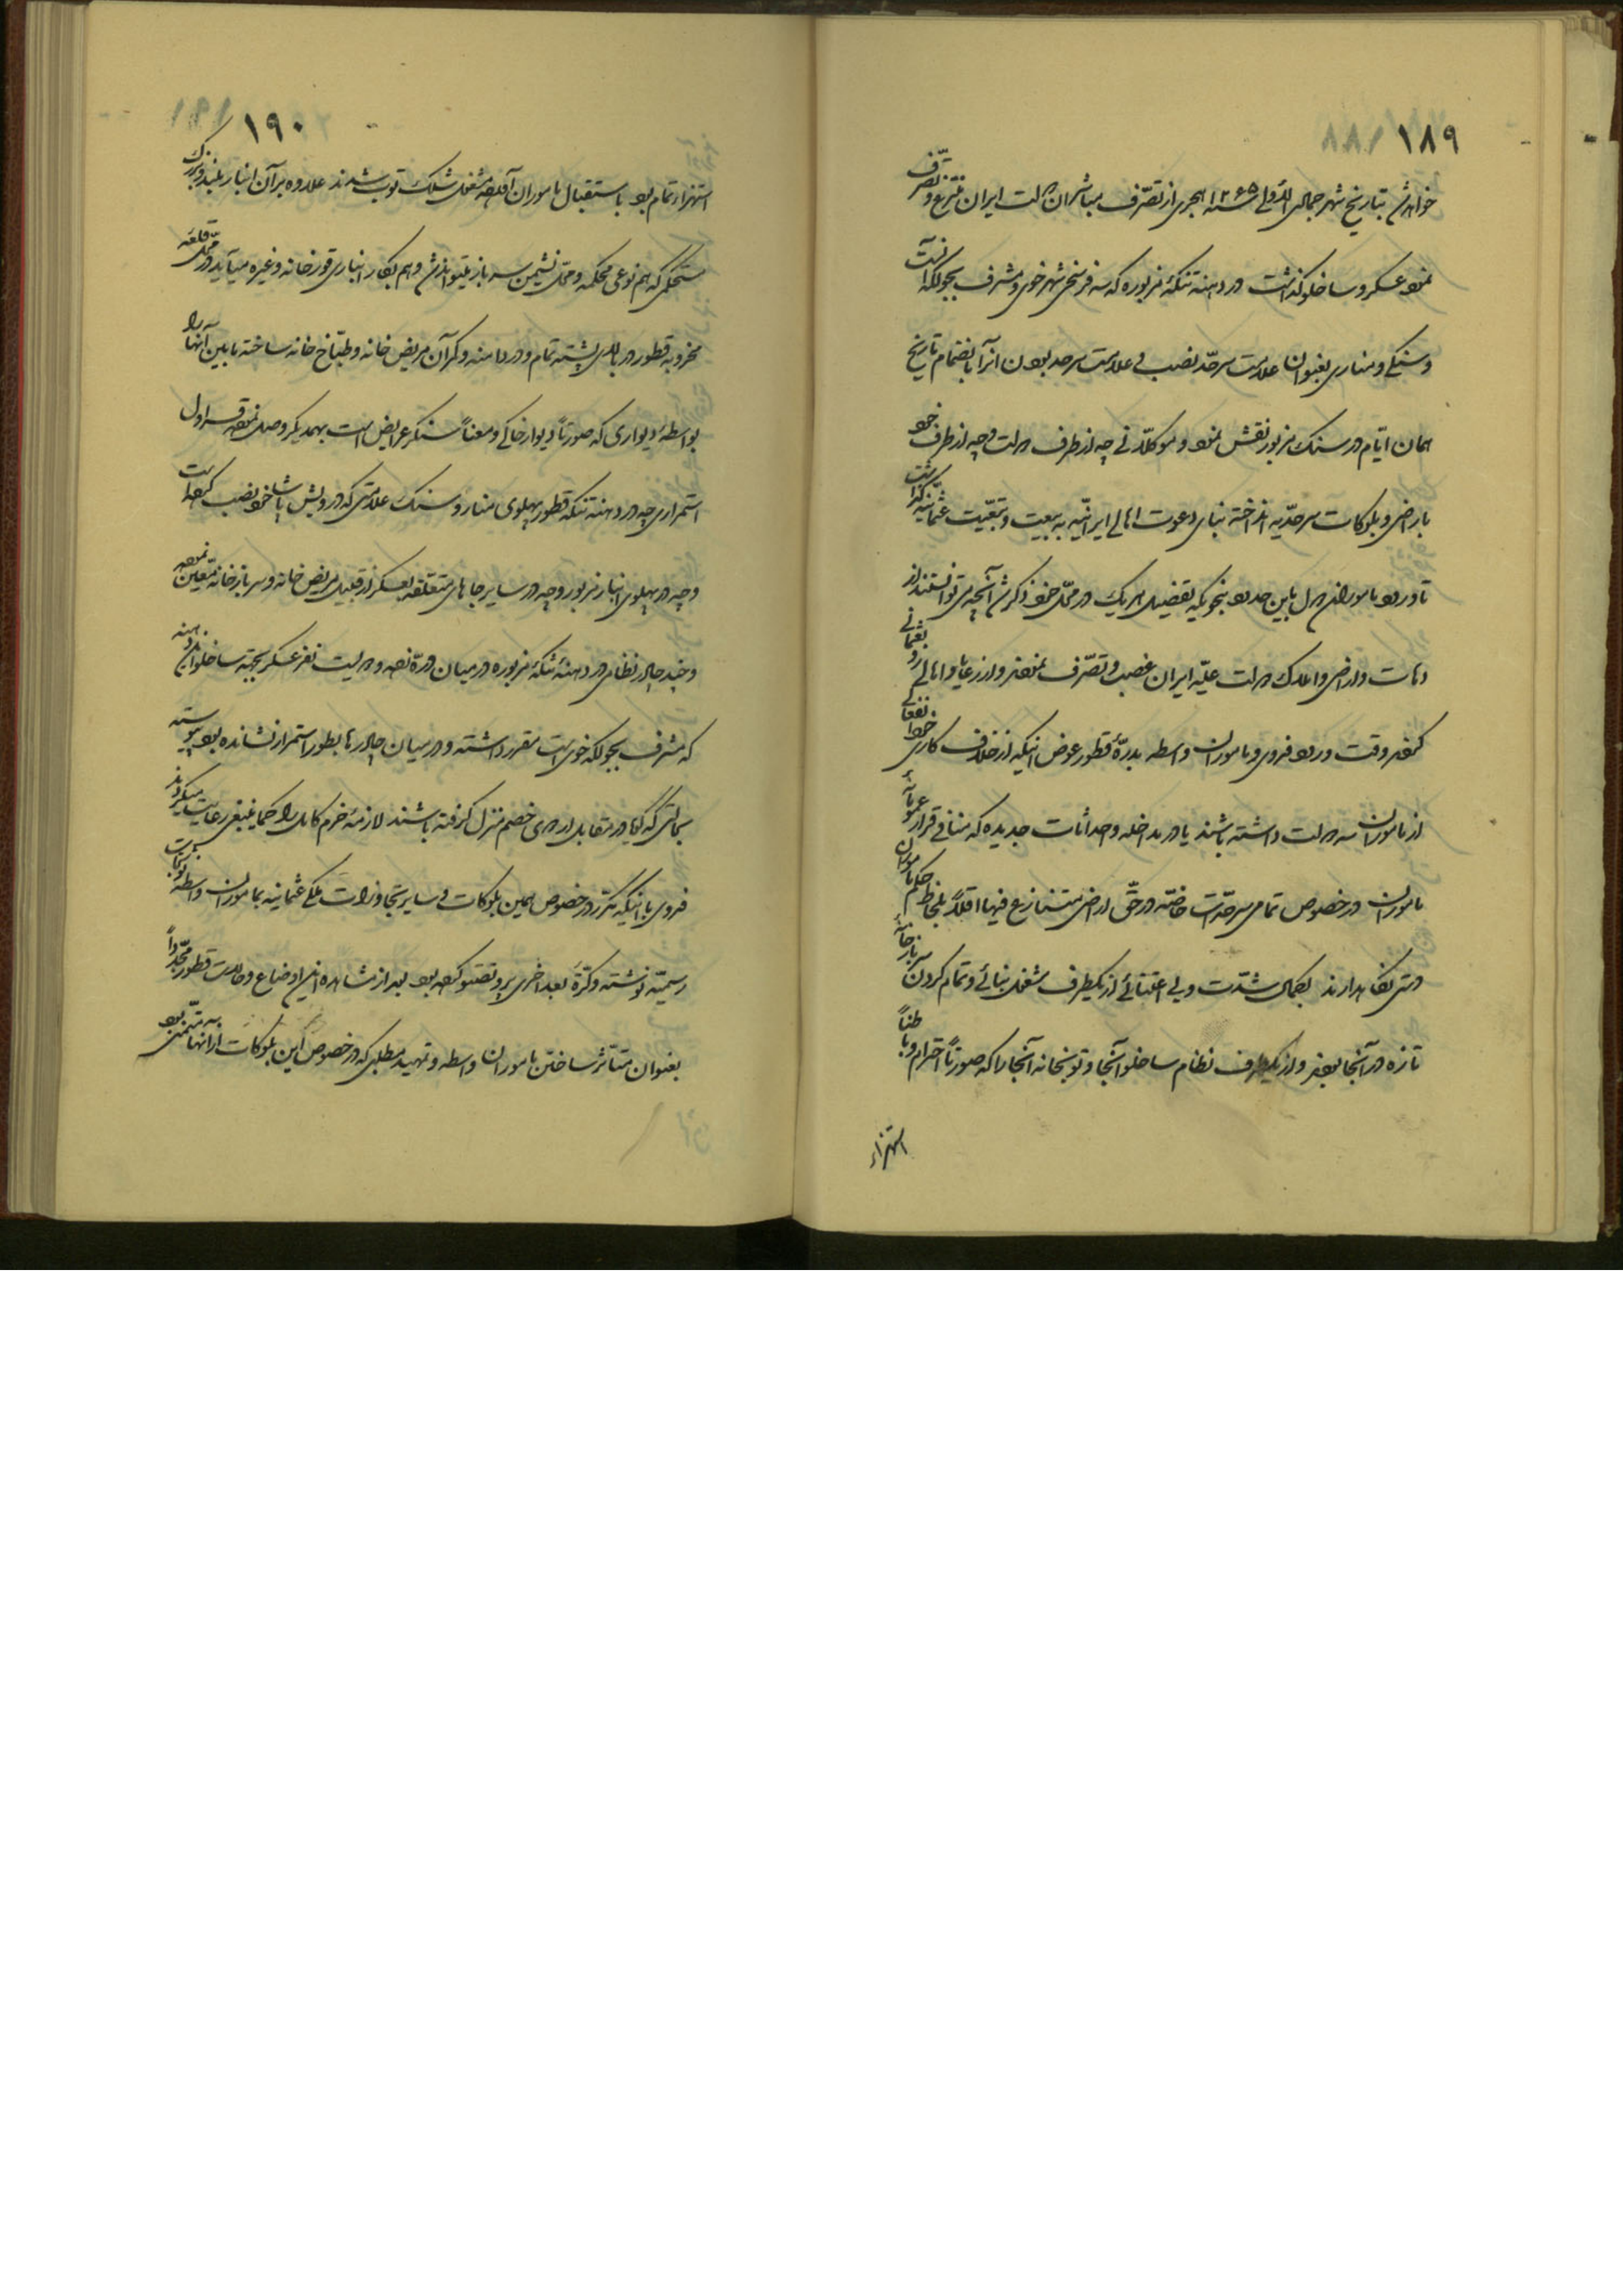 ۱۸۹
خواهد شد بتاریخ شهر جمادی الاولی سنه ۱۲۶۵ هجری از تصرّف مباشران دولت ایران منتزع و تصرّف
نموده عسکر و ساخلو گذاشت در دهنه تنگه مزبوره که سه فرسخی شهر خوی و مشرف بجولکه آنست
و سنگی و مناری بعنوان علامت سرحدّ نصب و علامت سرحد بودن آنرا بانضمام تاریخ
همان ایّام در سنگ مزبور نقش نموده و موکلانی چه از طرف دولت و چه از طرف خود
باراضی و بلوکات سرحدّیه انداخته بنای دعوت اهالی ایرانیّه به بیعت و تبعیّت عثمانیّه گذاشت
تا ورود مامورین دول باین حدود بنحویکه تفصیل هر یک در محلّ خود ذکر شد آنچه توانستند از
دهات و اراضی و املاک دولت علیّه ایران غصب و تصرّف نموده و از رعایا و اهالی رو بعثمانی
کرده وقت ورود فدوی و مامورین واسطه بدرّهٔ قطور عوض اینکه از خلاف کاری خود انفعالی
از مامورین سه دولت داشته باشند یا در مداخله و احداثات جدیده که منافی قرارداد عمومیانهٔ
مامورین در خصوص تمامی سرحدّات خاصّه در حقّ اراضی متنازع فیها اقلاً ملاحظه حکم مامورین
دستی نگاهدارند بکمال شدّت و بی اعتنائی از یکطرف مشغول بنائی و تمام کردن سربازخانهٔ
تازه در آنجا بودند و از یکطرف نظام ساخلو آنجا و توپخانه آنجا را که صورتاً احترام و باطناً
استهزاء
۱۹۰
استهزاء تمام بود باستقبال مامورین آورده مشغول شلیک توپ شدند علاوه بر آن انبار بلند و بزرک
مستحکمی که هم نوعی محکمه و محلّ نشیمن سرباز میتواند شد و هم بکار انباری قورخانه و غیره میآید در محلّ قلعه
مخروبه قطور در بالای پشته تمام و در دامنه و کمر آن مریض خانه و طبّاخ خانه ساخته مابین آنها را
بواسطهٔ دیواری که صورتاً دیوار خاکی و معناً سنگر عریض است بهمدیگر وصل نموده قراول
استمراری چه در دهنه تنگه قطور پهلوی منار و سنگ علامتی که درویش پاشا خود نصب کرده است
و چه در پهلوی انبار مزبور و چه در سایر جاهای متعلقه بعسکر از قبیل مریض خانه و سربازخانه متعیّن نموده
و چند چادر نظامی در دهنهٔ تنگهٔ مزبوره در میان درّه زده و دویست نفر عسکر بجهته ساخلو این دهنه
که مشرف بجولکه خوی است مقرر داشته و در میان چادرها بطور استمرار نشانده بود پیوسته
بحالتی که گویا در مقابل اردوی خصم منزل گرفته باشند لازمهٔ حزم کامل را کما ینبغی رعایت میکردند
فدوی با اینکه مکرّر در خصوص همین بلوکات و سایر تجاوزات ملکی عثمانیه بمامورین واسطه نوشتجات
رسمیّه نوشته و کرّةً بعد اخری پروتستو کرده بود بعد از مشاهده این اوضاع و حالات قطور مجدّداً
بعنوان متأثر ساختن مامورین واسطه و تمهید مطلبی که در خصوص این بلوکات از آنها متمنّی بود